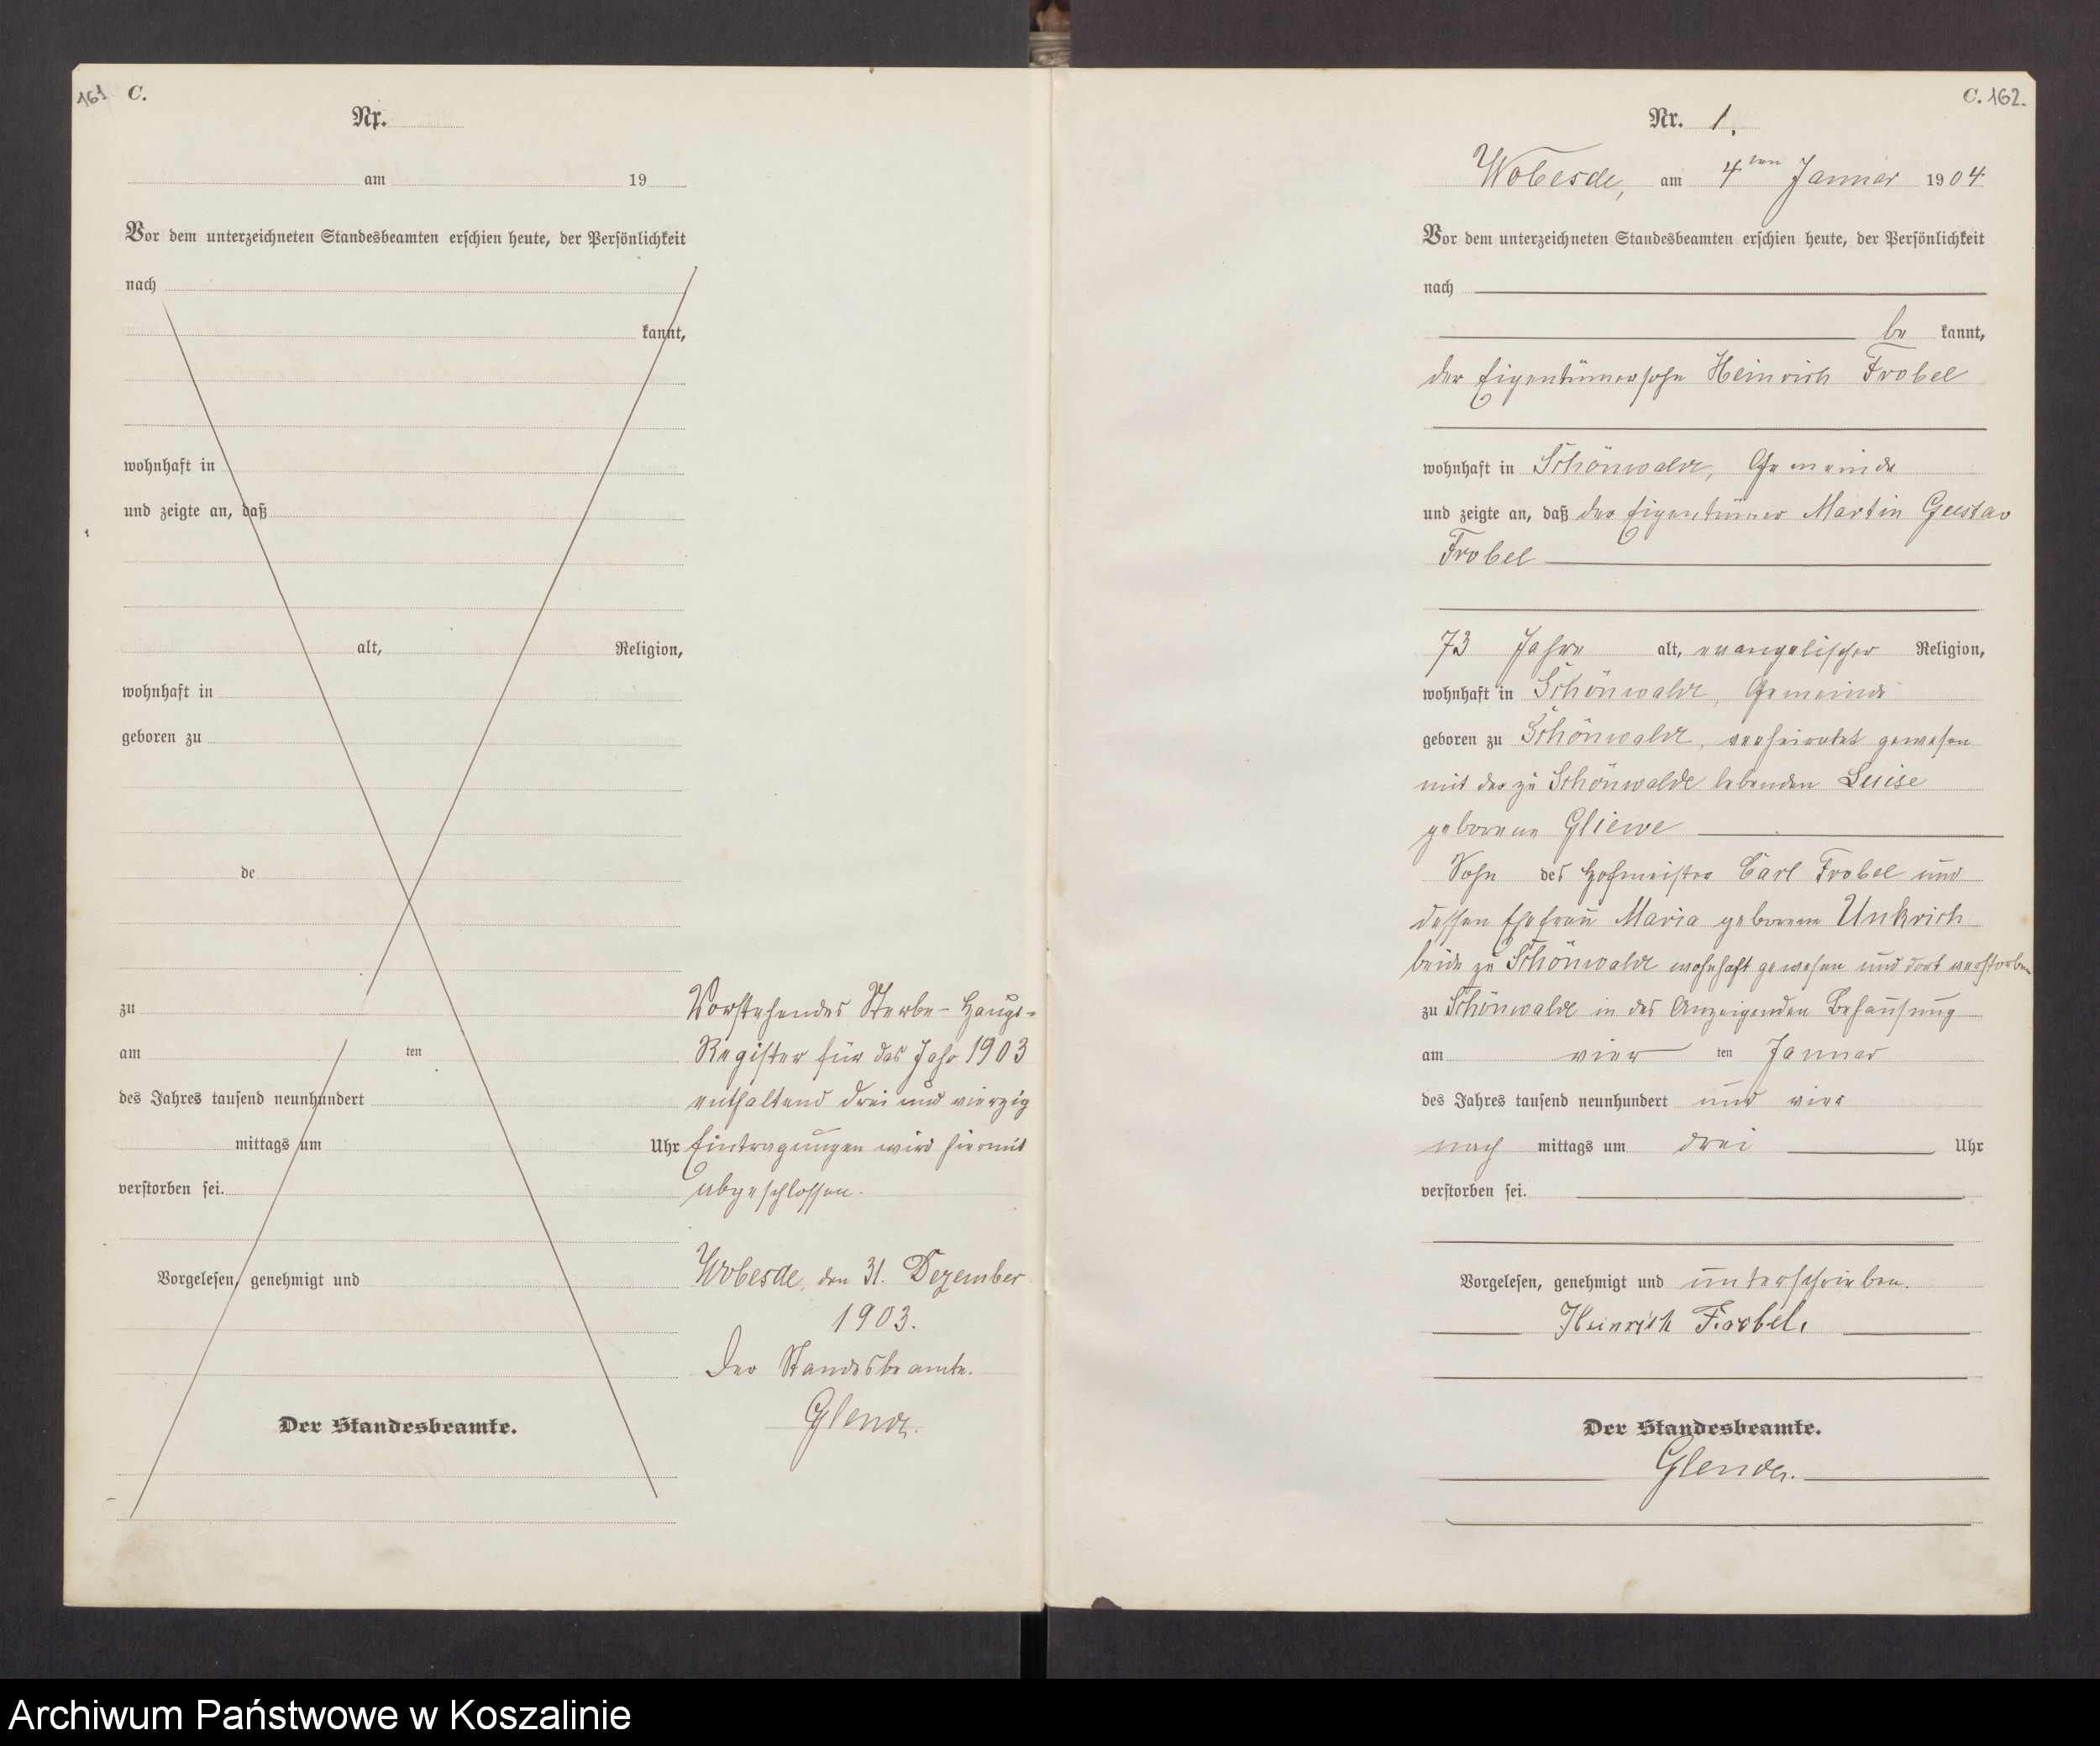 161 C.
Nr.
am 19
Vor dem unterzeichneten Standesbeamten erschien heute, der Persönlichkeit
nach
kannt,
wohnhaft in
und zeigte an, daß
alt, Religion,
wohnhaft in
geboren zu
de
zu
am ten
des Jahres tausend neunhundert
mittags um Uhr
verstorben sei.
Vorgelesen, genehmigt und
Der Standesbeamte.
Vorstehendes Sterbe-Haupt-
Register für das Jahr 1903
enthaltend drei und vierzig
Eintragungen wird hiermit
abgeschlossen.
Wobesde, den 31. Dezember
1903.
Der Standesbeamte.
Glende.
C. 162.
Nr. 1.
Wobesde, am 4ten Januar 1904
Vor dem unterzeichneten Standesbeamten erschien heute, der Persönlichkeit
nach
be kannt,
der Eigentümersohn Heinrich Frobel
wohnhaft in Schönwalde, Gemeinde
und zeigte an, daß der Eigentümer Martin Gustav
Frobel
73 Jahre alt, evangelischer Religion,
wohnhaft in Schönwalde, Gemeinde
geboren zu Schönwalde, verheiratet gewesen
mit der zu Schönwalde lebenden Luise
geborene Gliewe
Sohn des Hofmeister Carl Frobel und
dessen Ehefrau Maria geborene Unkrich
beide zu Schönwalde wohnhaft gewesen und dort verstorben
zu Schönwalde in des Anzeigenden Behausung
am vier ten Januar
des Jahres tausend neunhundert und vier
nach mittags um drei Uhr
verstorben sei.
Vorgelesen, genehmigt und unterschrieben.
Heinrich Frobel.
Der Standesbeamte.
Glende.
Archiwum Państwowe w Koszalinie